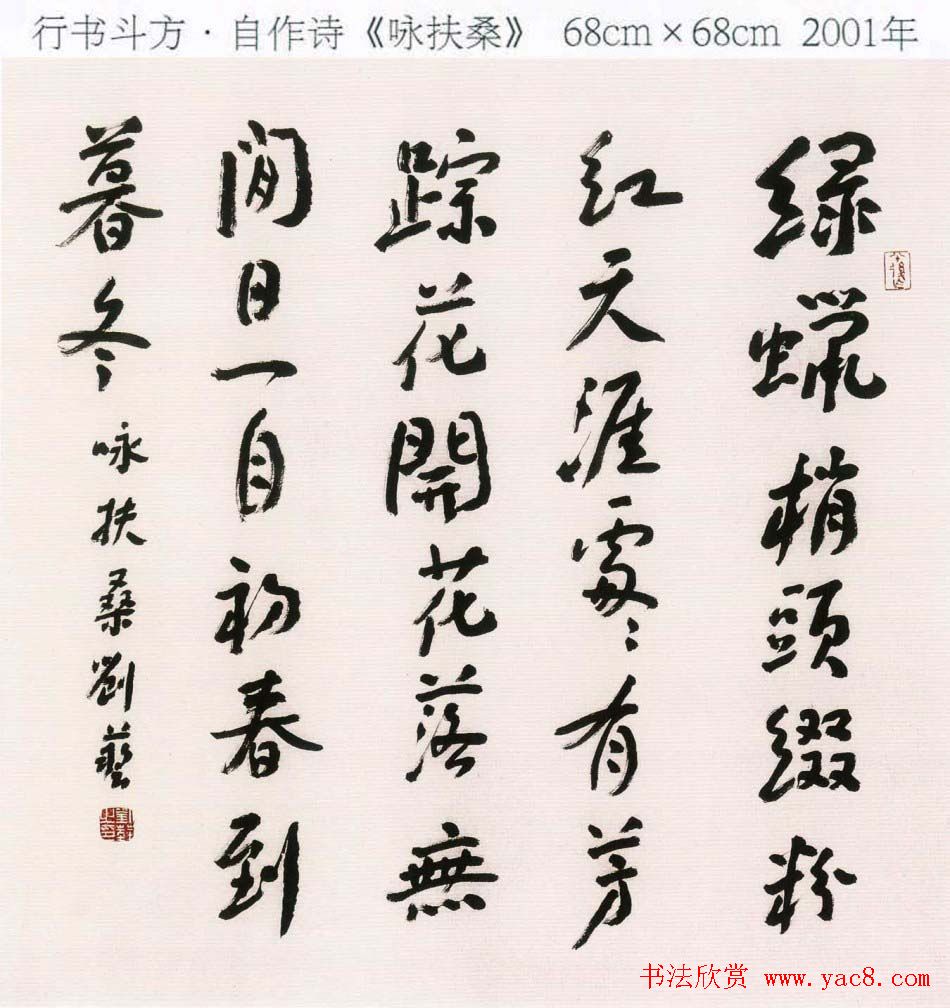 行书斗方·自作诗《咏扶桑》 68cm×68cm 2001年
绿蠟梢頭綴粉
红天涯處〻有芳
踪花開花落無
閒日一自初春到
暮冬 咏扶桑劉藝
书法欣赏 www.yac8.com